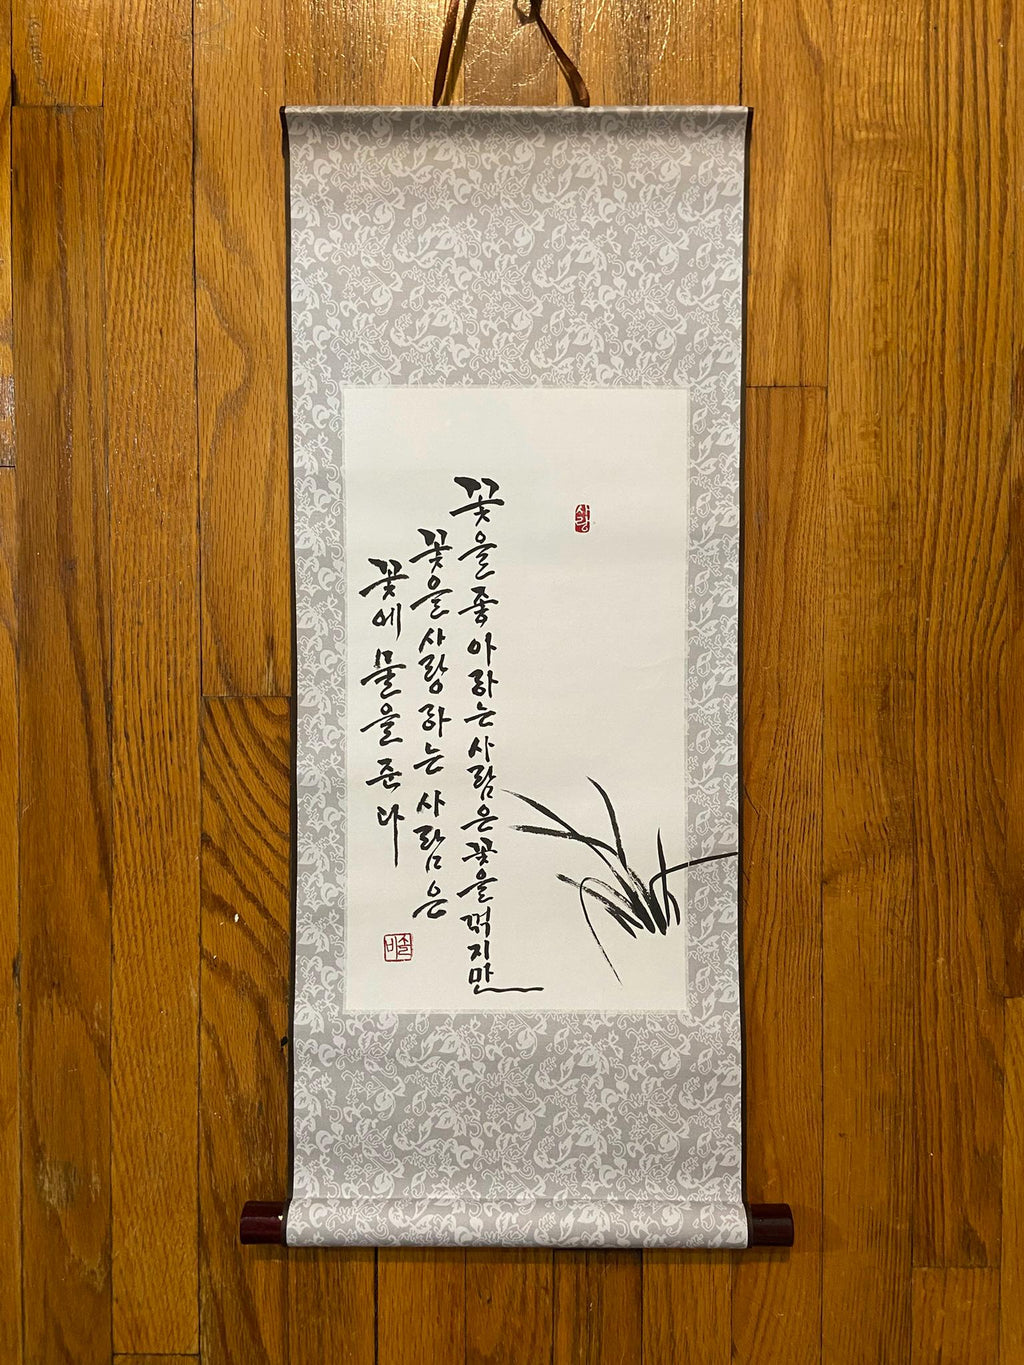 사랑
꽃을 좋아하는 사람은 꽃을 꺾지만
꽃을 사랑하는 사람은
꽃에 물을 준다
솔바